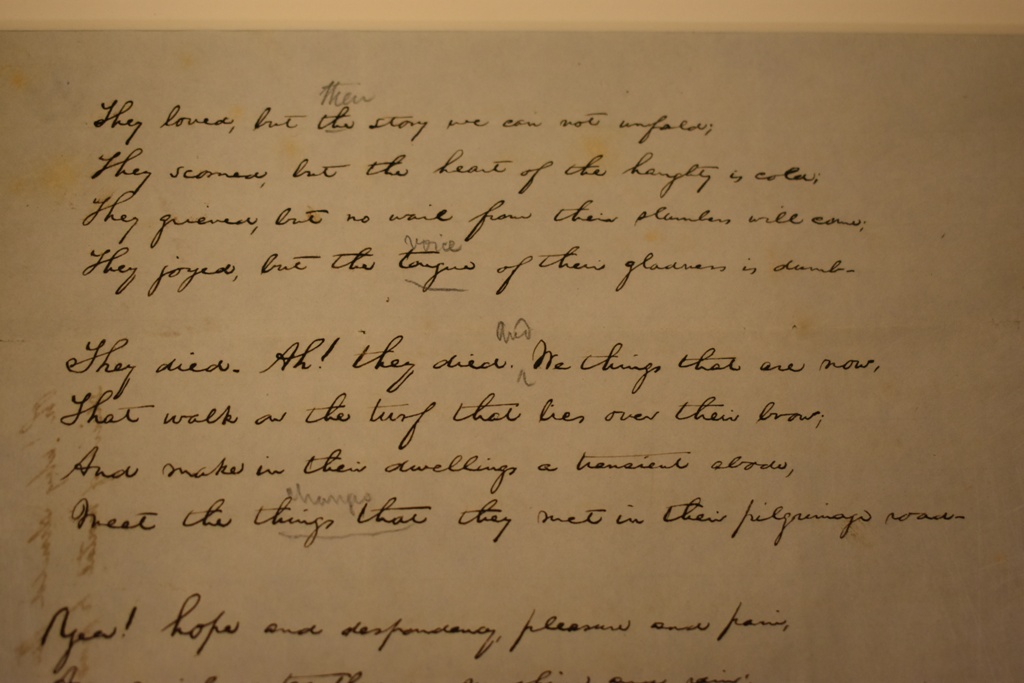 then
They loved, but the story we can not unfold;
They scorned, but the heart of the haughty is cold;
They grieved, but no wail from their slumbers will come;
voice
They joyed, but the tongue of their gladness is dumb-
and
They died. Ah! they died. We things that are now,
That walk on the turf that lies over their brow;
And make in their dwellings a transient abode,
changes
Meet the things that they met in their pilgrimage road-
Yea! hope and despondency, pleasure and pain,